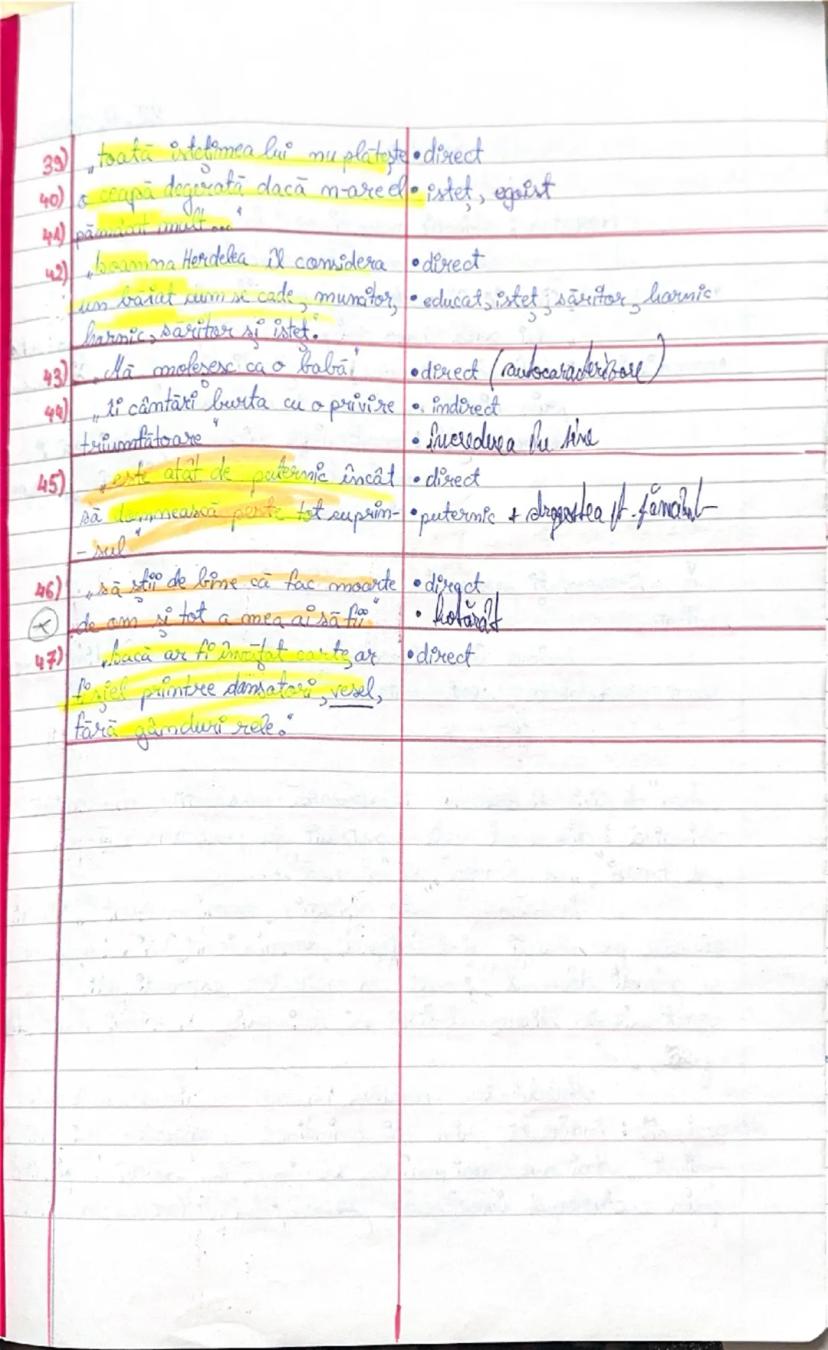 39) „toată istețimea lui nu plătește • direct
40) o ceapă degerată dacă n-are el • isteț, egoist
41) pământ mult..."
42) „Doamna Herdelea îl considera • direct
un băiat cum se cade, muncitor, • educat, isteț, săritor, harnic
harnic, săritor și isteț."
43) „Mă moleșesc ca o babă" • direct (autocaracterizare)
44) „îi cântări burta cu o privire • indirect
triumfătoare" • încrederea în sine
45) „este atât de puternic încât • direct
să domnească peste tot cuprin- • puternic + dragostea pt. pământ
- sul"
46) „să știi de bine că fac moarte • direct
de om și tot a mea ai să fii" • hotărât
47) „Dacă ar fi învățat carte, ar • direct
fi și el printre dansatori, vesel,
fără gânduri rele."